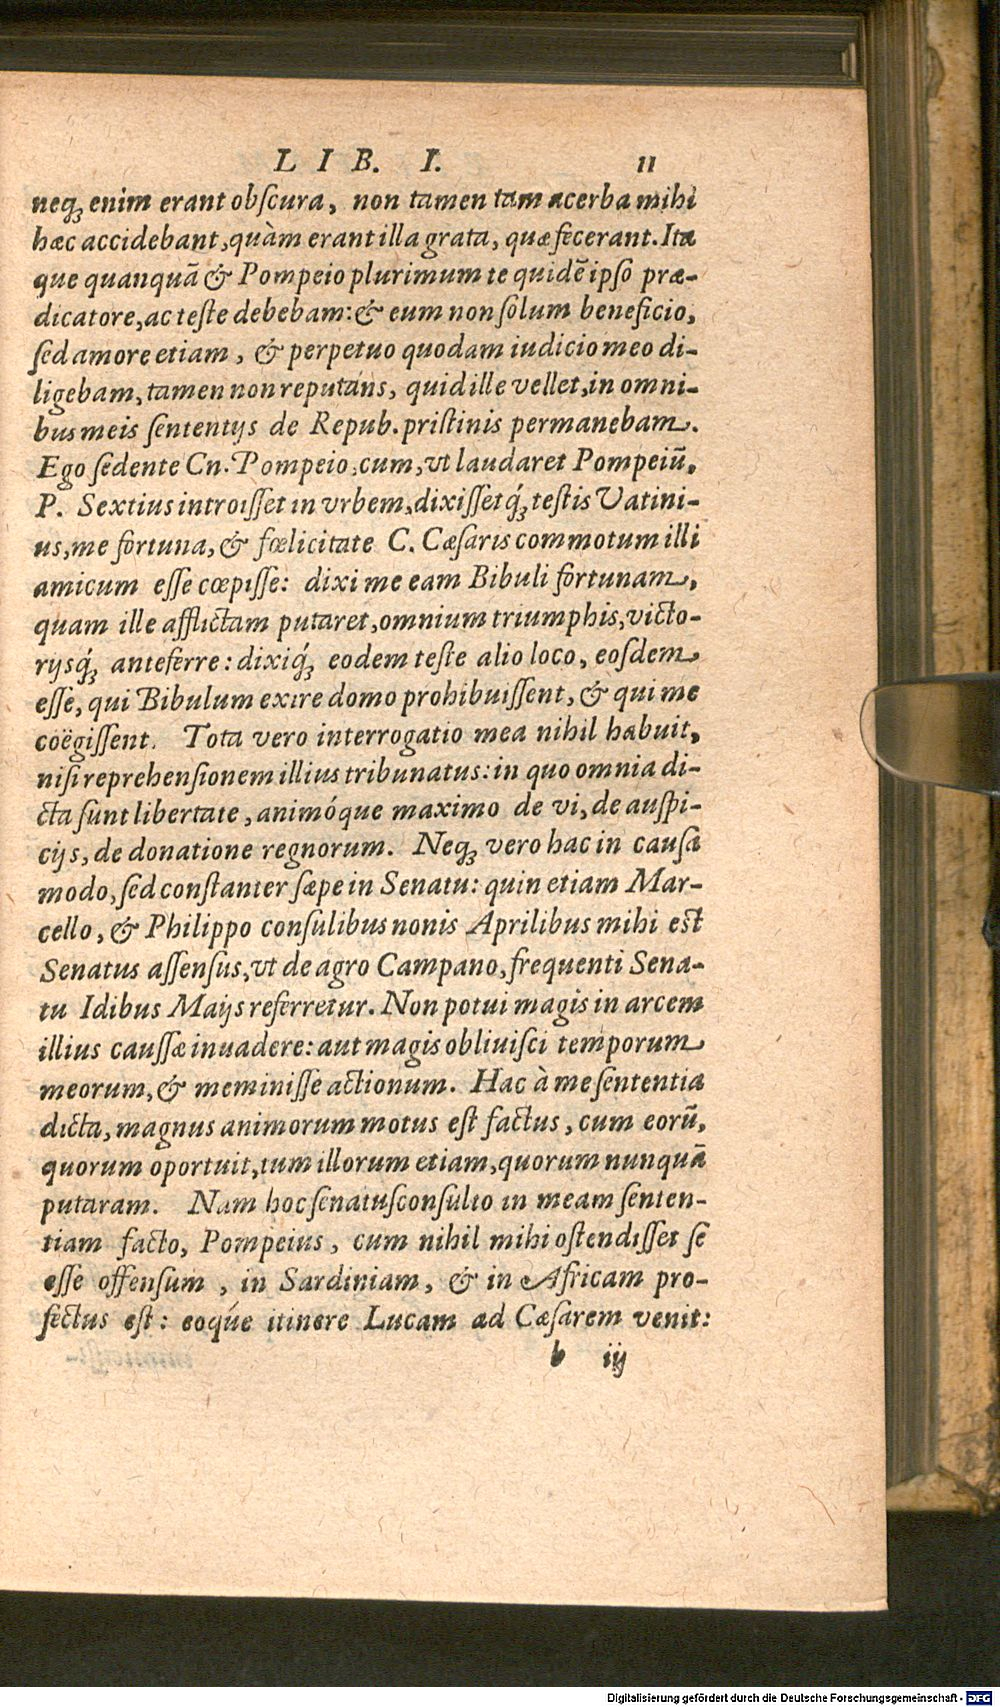 LIB. I. 11
neq; enim erant obſcura, non tamen tam acerba mihi
hæc accidebant, quàm erant illa grata, quæ fecerant. Ita
que quanquã & Pompeio plurimum te quidẽ ipſo præ-
dicatore, ac teſte debebam: & eum non ſolum beneficio,
ſed amore etiam, & perpetuo quodam iudicio meo di-
ligebam, tamen non reputans, quid ille vellet, in omni-
bus meis ſententijs de Repub. priſtinis permanebam.
Ego ſedente Cn. Pompeio, cum, vt laudaret Pompeiũ,
P. Sextius introiſſet in vrbem, dixiſſetq́; teſtis Vatini-
us, me fortuna, & fœlicitate C. Cæſaris commotum illi
amicum eſſe cœpiſſe: dixi me eam Bibuli fortunam,
quam ille afflictam putaret, omnium triumphis, victo-
rijsq́; anteferre: dixiq́; eodem teſte alio loco, eoſdem
eſſe, qui Bibulum exire domo prohibuiſſent, & qui me
coëgiſſent. Tota vero interrogatio mea nihil habuit,
niſi reprehenſionem illius tribunatus: in quo omnia di-
cta ſunt libertate, animóque maximo de vi, de auſpi-
cijs, de donatione regnorum. Neq; vero hac in cauſa
modo, ſed conſtanter ſæpe in Senatu: quin etiam Mar-
cello, & Philippo conſulibus nonis Aprilibus mihi eſt
Senatus aſſenſus, vt de agro Campano, frequenti Sena-
tu Idibus Maijs referretur. Non potui magis in arcem
illius cauſſæ inuadere: aut magis obliuiſci temporum
meorum, & meminiſſe actionum. Hac à me ſententia
dicta, magnus animorum motus eſt factus, cum eorũ,
quorum oportuit, tum illorum etiam, quorum nunquã
putaram. Nam hoc ſenatuſconſulto in meam ſenten-
tiam facto, Pompeius, cum nihil mihi oſtendiſſet ſe
eſſe offenſum, in Sardiniam, & in Africam pro-
fectus eſt: eoqúe itinere Lucam ad Cæſarem venit:
b iij
Digitalisierung gefördert durch die Deutsche Forschungsgemeinschaft - DFG